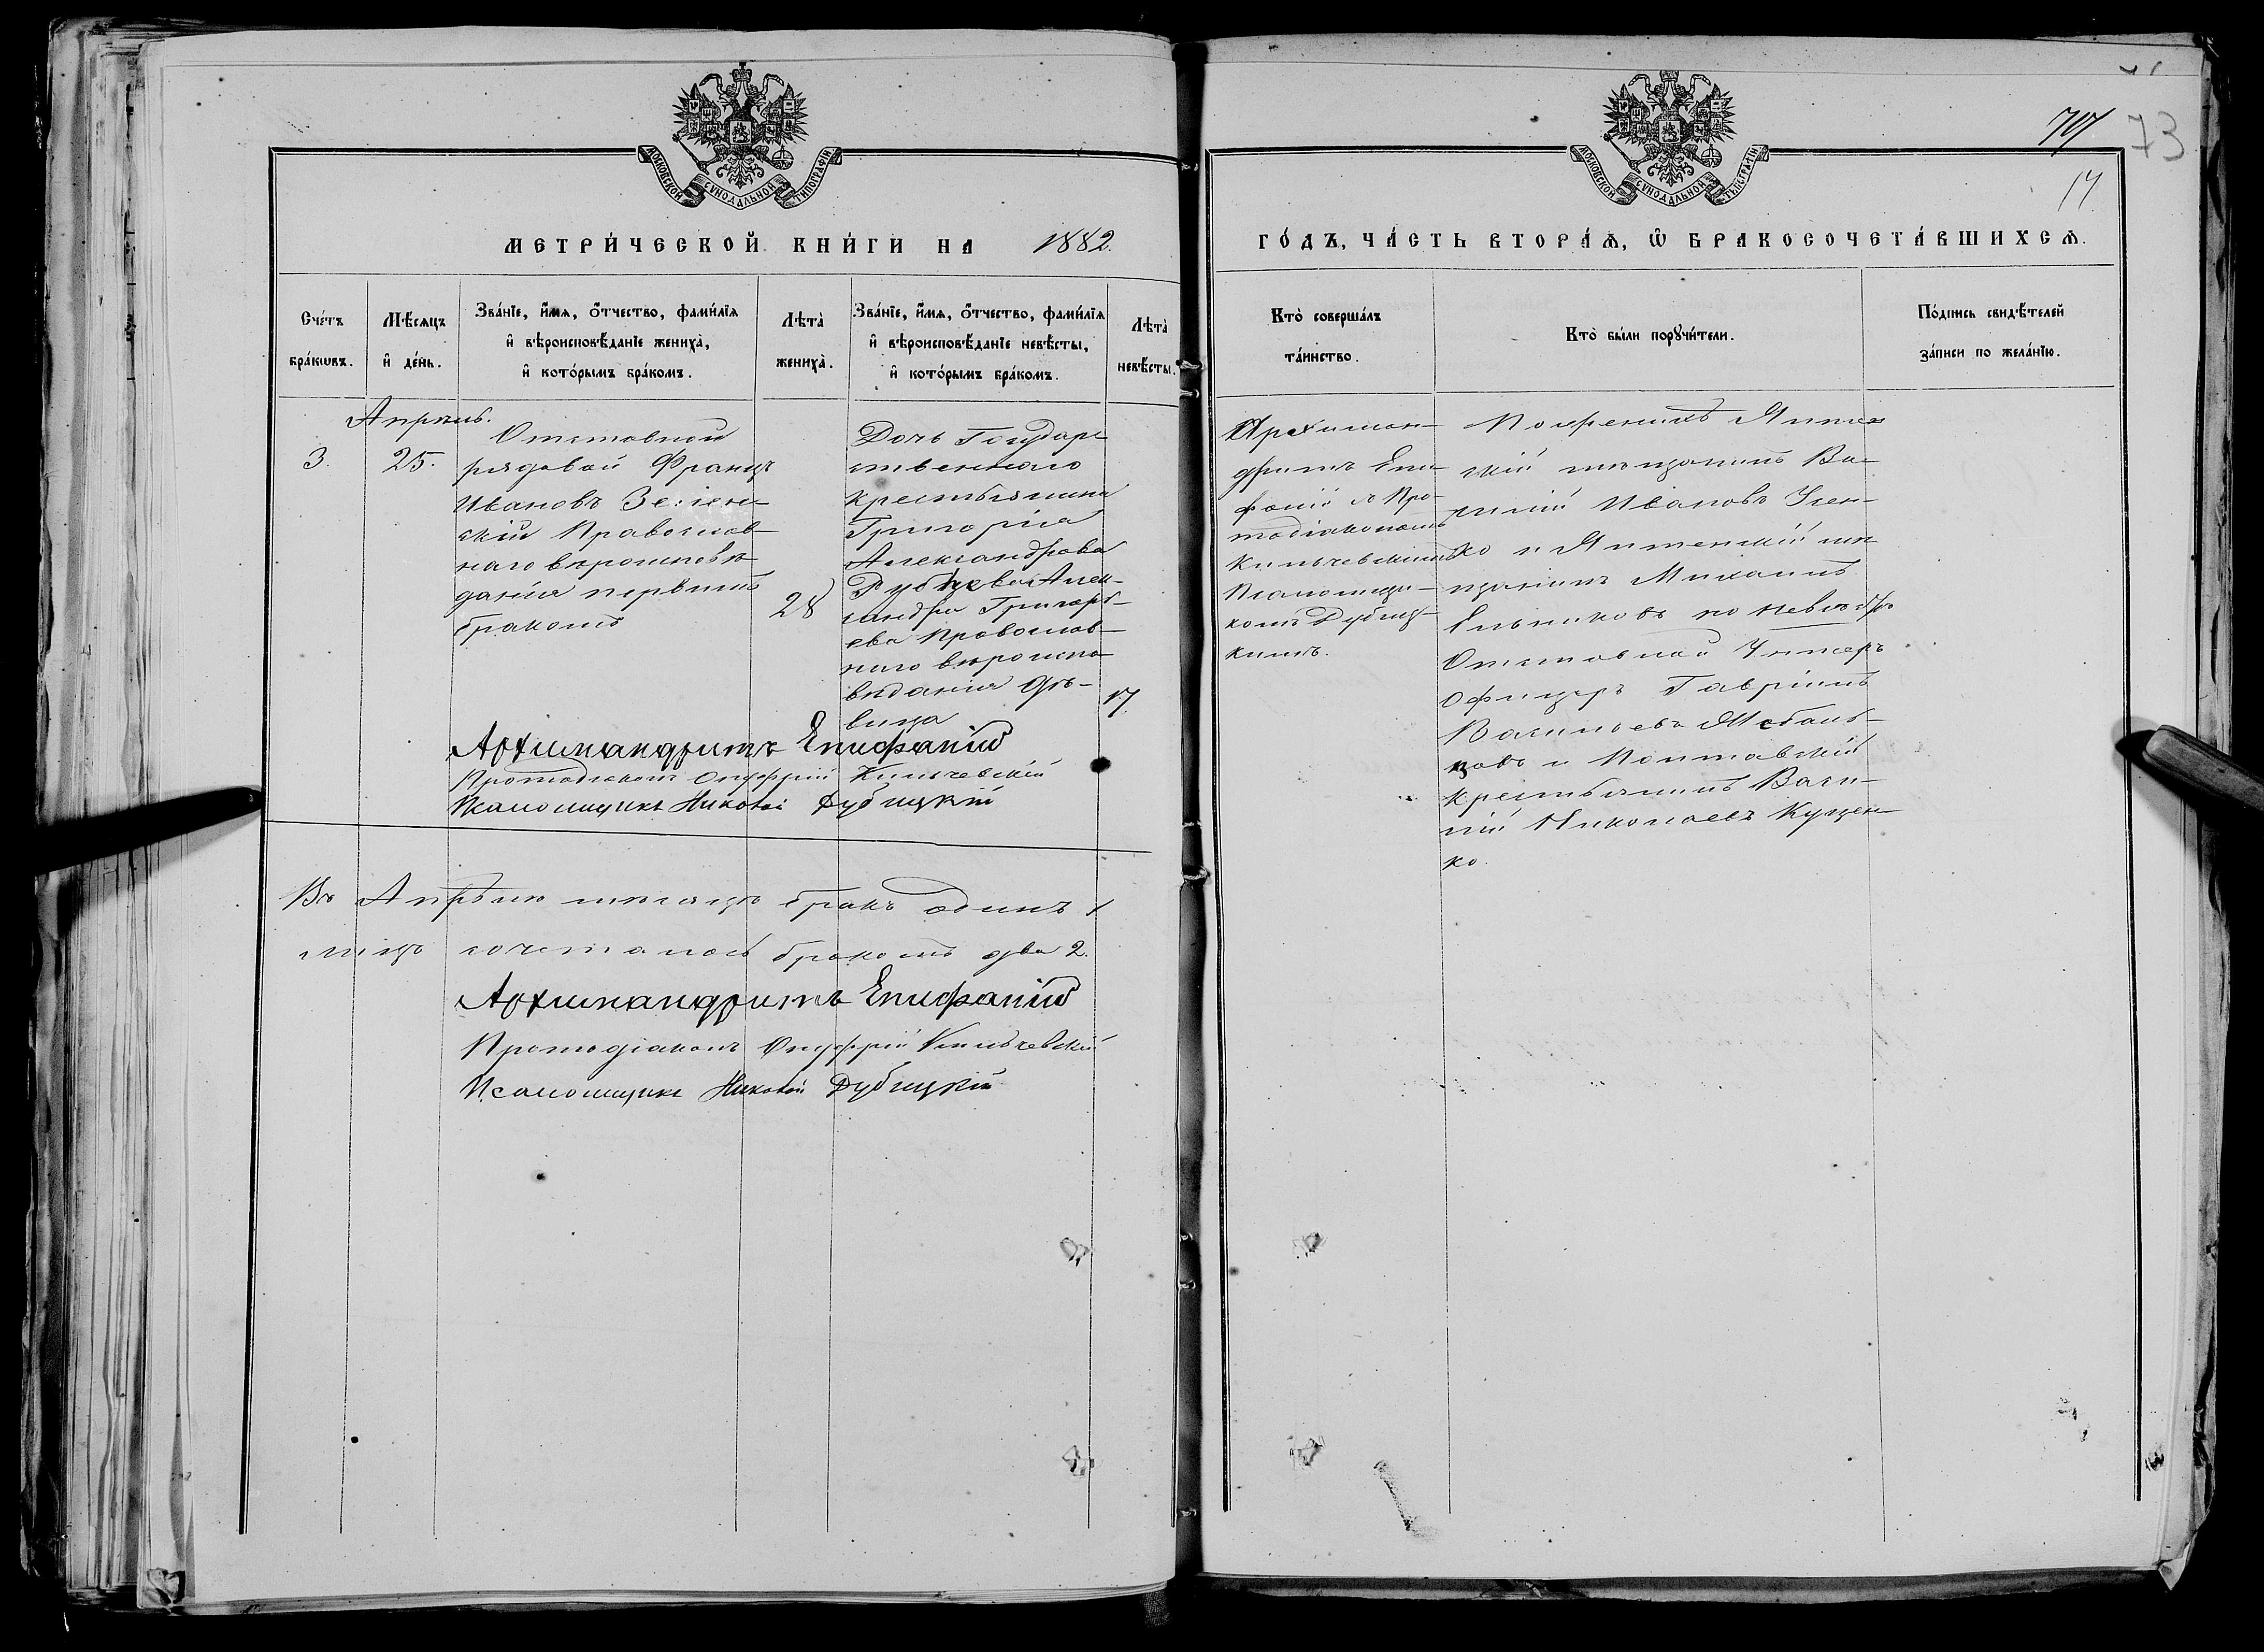 МОСКОВСКОЙ СѴНОДАЛЬНОЙ ТИПОГРАФІИ
МЕТРИ́ЧЕСКОЙ КНИ́ГИ НА 1882.
Сче́тъ бра́кѡвъ.
Мѣ́сѧцъ и҆ де́нь.
Зва́нїе, и҆́мѧ, ѻ҆́тчество, фами́лїѧ и҆ вѣроисповѣ́данїе жениха̀, и҆ кото́рымъ бра́комъ.
Лѣта̀ жениха̀.
Зва́нїе, и҆́мѧ, ѻ҆́тчество, фами́лїѧ и҆ вѣроисповѣ́данїе невѣ́сты, и҆ кото́рымъ бра́комъ.
Лѣта̀ невѣ́сты.
Апрѣль.
3.
25.
Отставной
рядовой Францъ
Ивановъ
скій Православ-
наго вѣроисповѣ-
данія первымъ
бракомъ
28
Дочь Государ-
ственнаго
крестьянина
Григорія
Александрова
Алек-
сандра Григорь-
ева Православ-
наго вѣроиспо-
вѣданія дѣ-
вица
17
Архимандритъ Епифаній
Протодіаконъ Онуфрій Кильчевскій
Псаломщикъ Николай Дубицкій
Въ Апрѣлѣ мѣсяцѣ бракъ одинъ 1
лицъ сочеталось бракомъ два 2.
Архимандритъ Епифаній
Протодіаконъ Онуфрій Кильчевскій
Псаломщикъ Николай Дубицкій
МОСКОВСКОЙ СѴНОДАЛЬНОЙ ТИПОГРАФІИ
73
17
ГО́ДЪ, ЧА́СТЬ ВТОРА́Ѧ, Ѡ҆ БРАКОСОЧЕТА́ВШИХСѦ.
Кто̀ соверша́лъ та́инство.
Кто̀ бы́ли порꙋчи́тели.
По́дпись свидѣ́телей за́писи по жела́нїю.
Архиман-
дритъ Епи-
фаній съ Про-
тодіакономъ
Кильчевскимъ
Псаломщи-
комъ Дубиц-
кимъ.
По женихѣ
скій мѣщанинъ Ва-
силій Ивановъ
ко и Ялтенскій мѣ-
щанинъ Михаилъ
по невѣстѣ
Отставной Унтеръ
офицеръ Гавріилъ
Васильевъ
и Полтавскій
крестьянинъ Васи-
лій Николаевъ Куцен-
ко.